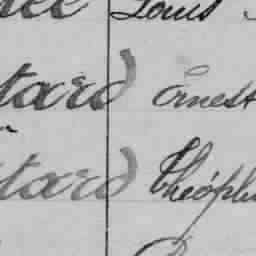 Louis
tard Ernest
tard Théoph